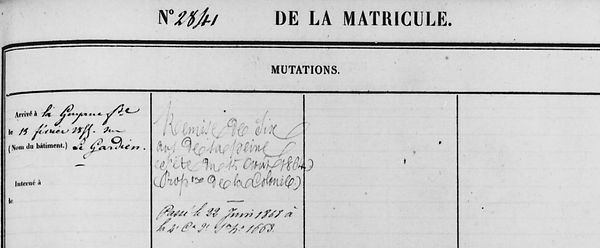 N° 2841 DE LA MATRICULE.
MUTATIONS.
Arrivé à la Guyane fse
le 18 février 1855. sur
(Nom du bâtiment). Le Gardien.
Interné à
le
Remise de Six
ans de la peine
(Propon de la Colonie)
Passé le 22 Juin 1868 à
la 2e Con